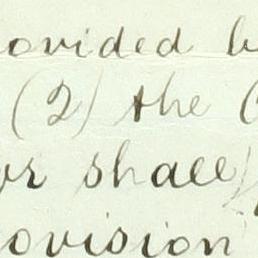 ovided b
(2) the C
or shall
ovision